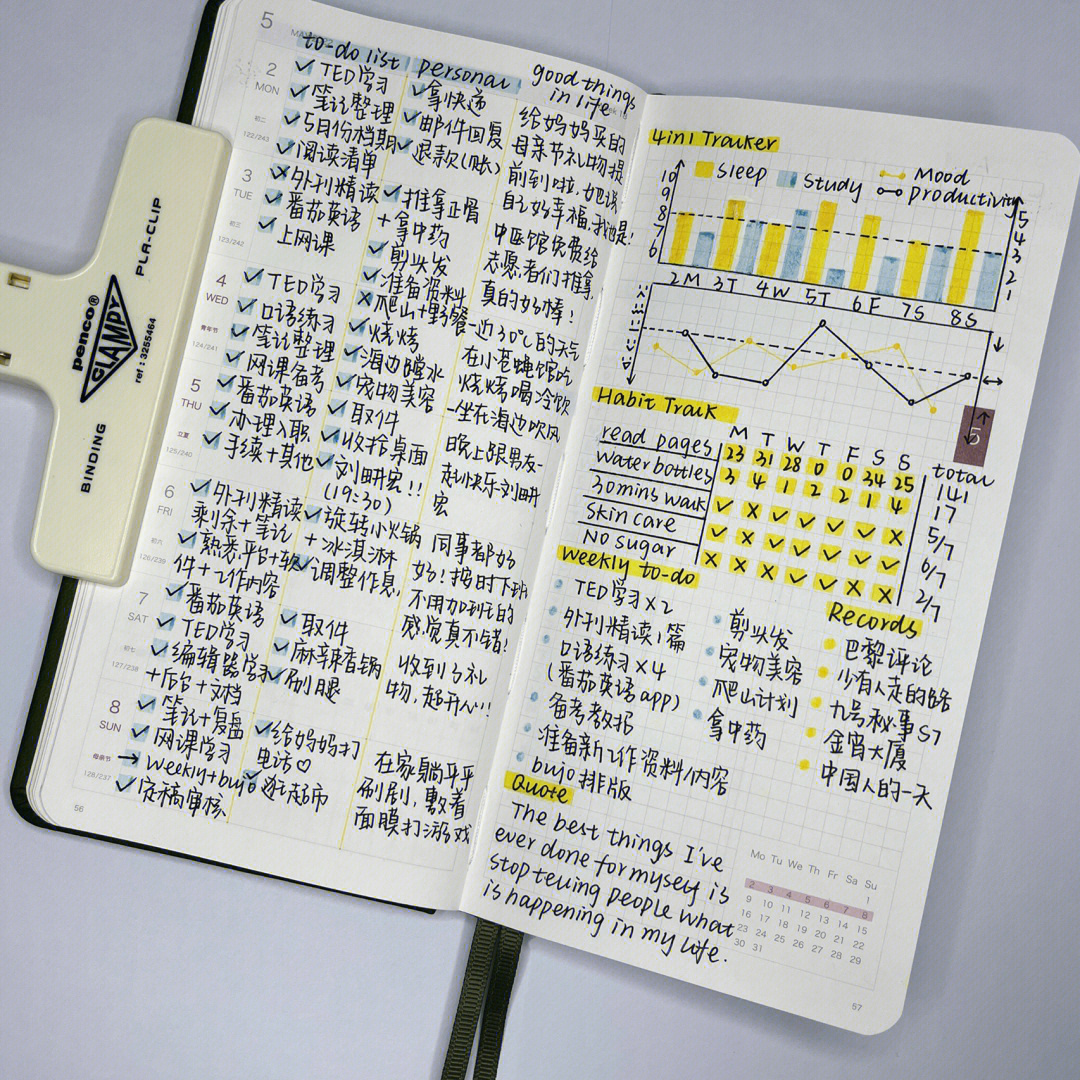 5
MAY
to-do list
personal
good things
in life
2
MON
初二
122/243
✓TED学习
✓笔记整理
✓5月份档期
✓阅读清单
✓拿快递
✓邮件回复
✓退款(账)
给妈妈买的
母亲节礼物提
前到啦,她说
自己好幸福,我也是!
3
TUE
初三
123/242
外刊精读
✓番茄英语
✓上网课
✓推拿正骨
+拿中药
✓剪头发
✓准备资料
中医馆免费给
志愿者们推拿,
真的好棒!
4
WED
青年节
124/241
✓TED学习
✓口语练习
✓笔记整理
✓网课备考
×爬山+野餐
✓烧烤
✓海边踏水
✓宠物美容
-近30℃的天气
在小苍蝇馆吃
烧烤喝冷饮
-坐在海边吹风
5
THU
立夏
125/240
✓番茄英语
✓办理入职
✓手续+其他
✓取件
✓收拾桌面
✓刘畊宏!!
(19:30)
晚上跟男友一
起快乐刘畊
宏
6
FRI
初六
126/239
✓外刊精读
剩余+笔记
✓熟悉平台+软
件+工作内容
✓旋转小火锅
+冰淇淋
✓调整作息
同事都好
好!按时下班
不用加到死的
感觉真不错!
7
SAT
初七
127/238
✓番茄英语
✓TED学习
✓编辑器学习
+后台+文档
✓取件
✓麻辣香锅
✓刷腿
收到了礼
物,超开心!!
8
SUN
母亲节
128/237
✓笔记+复盘
✓网课学习
→weekly+bujo
✓定稿审核
✓给妈妈打
电话♡
✓逛超市
在家躺平平
刷剧,敷着
面膜打游戏
56
penco®
CLAMPY
PLA-CLIP
ref : 3255464
BINDING
4in1 Tracker
Sleep
Study
Mood
Productivity
10
9
8
7
6
5
4
3
2
1
2M 3T 4W 5T 6F 7S 8S
5
Habit Track
M T W T F S S total
read pages 23 31 28 0 0 34 25 141
water bottles 3 4 1 2 2 1 4 17
30mins walk ✓ × ✓ ✓ ✓ ✓ × 5/7
skin care ✓ × ✓ ✓ ✓ ✓ ✓ 6/7
no sugar × × × ✓ ✓ × × 2/7
Weekly to-do
TED学习×2
外刊精读1篇
口语练习×4
(番茄英语app)
备考教招
准备新工作资料/内容
bujo排版
剪头发
宠物美容
爬山计划
拿中药
Records
巴黎评论
少有人走的路
九号秘事S7
金宵大厦
中国人的一天
Quote
The best things I've
ever done for myself is
stop telling people what
is happening in my life.
Mo Tu We Th Fr Sa Su
1
2 3 4 5 6 7 8
9 10 11 12 13 14 15
16 17 18 19 20 21 22
23 24 25 26 27 28 29
30 31
57